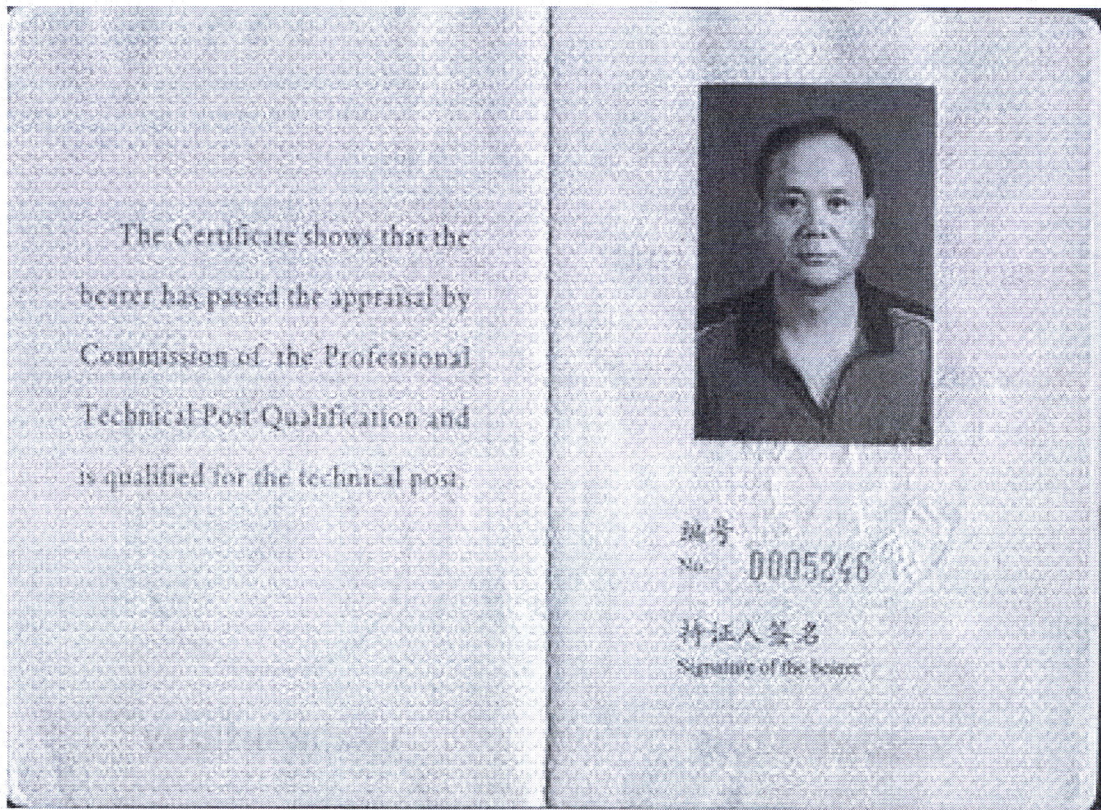 The Certificate shows that the
bearer has passed the appraisal by
Commission of the Professional
Technical Post Qualification and
is qualified for the technical post.
编号
No. 0005246
持证人签名
Signature of the bearer